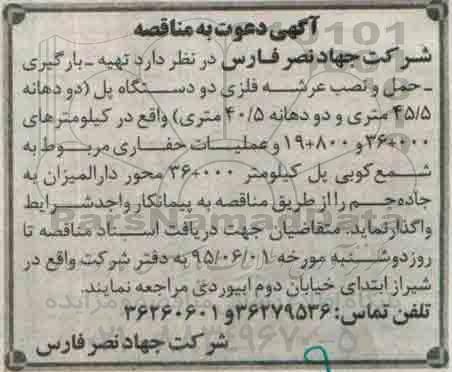 آگهی دعوت به مناقصه
شرکت جهاد نصر فارس در نظر دارد تهیه ـ بارگیری
ـ حمل و نصب عرشه فلزی دو دستگاه پل (دو دهانه
۴۵/۵ متری و دو دهانه ۴۰/۵ متری) واقع در کیلومترهای
۳۶+۰۰۰ و ۱۹+۸۰۰ و عملیات حفاری مربوط به
شمع کوبی پل کیلومتر ۳۶+۰۰۰ محور دارالمیزان به
جاده جم را از طریق مناقصه به پیمانکار واجد شرایط
واگذار نماید. متقاضیان جهت دریافت اسناد مناقصه تا
روز دوشنبه مورخه ۹۵/۰۶/۰۱ به دفتر شرکت واقع در
شیراز ابتدای خیابان دوم ابیوردی مراجعه نمایند.
تلفن تماس: ۳۶۲۷۹۵۳۶ و ۳۶۲۶۰۶۰۱
شرکت جهاد نصر فارس
ParsNamadData